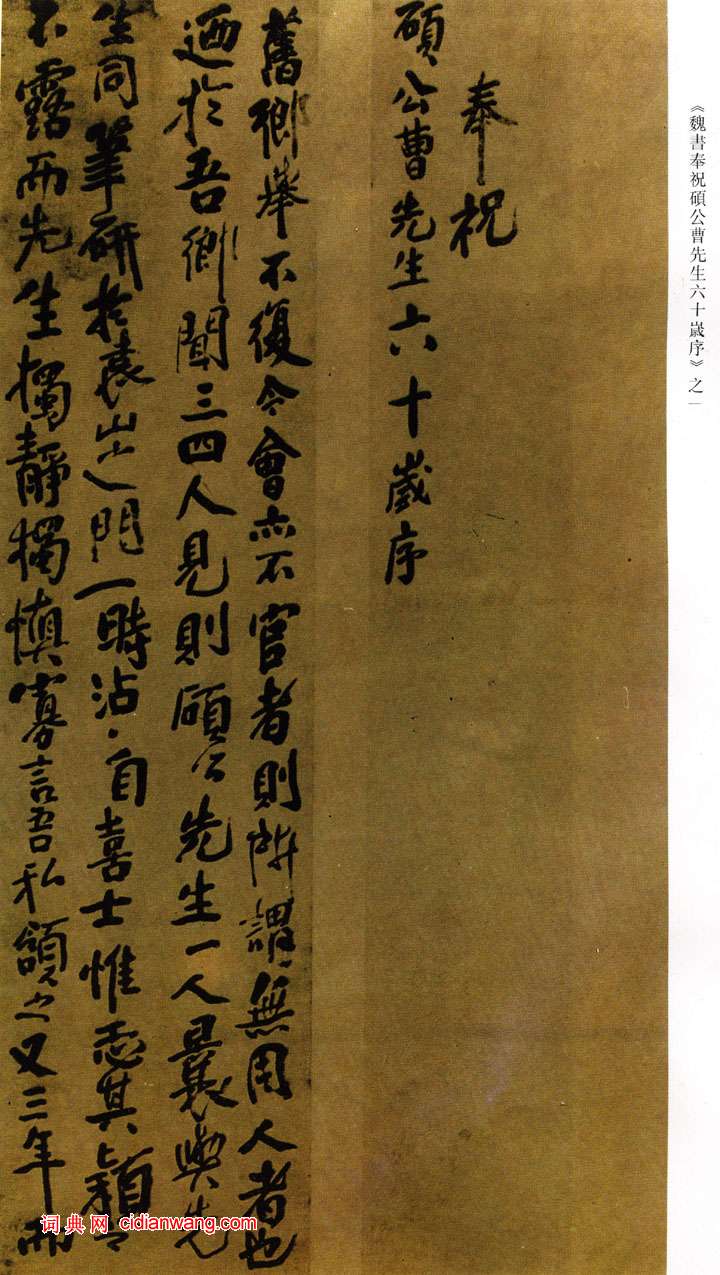 《魏書奉祝碩公曹先生六十歲序》之一
奉祝
碩公曹先生六十歲序
舊鄉舉不復令會亦不官者則所謂無用人者也
迺於吾鄉聞三四人見則碩公先生一人曩與先
生同筆研於袁山之門一時沾沾自喜士惟恐其穎之
不露而先生獨靜獨慎寡言吾私頷之又三年而
词典网 cidianwang.com